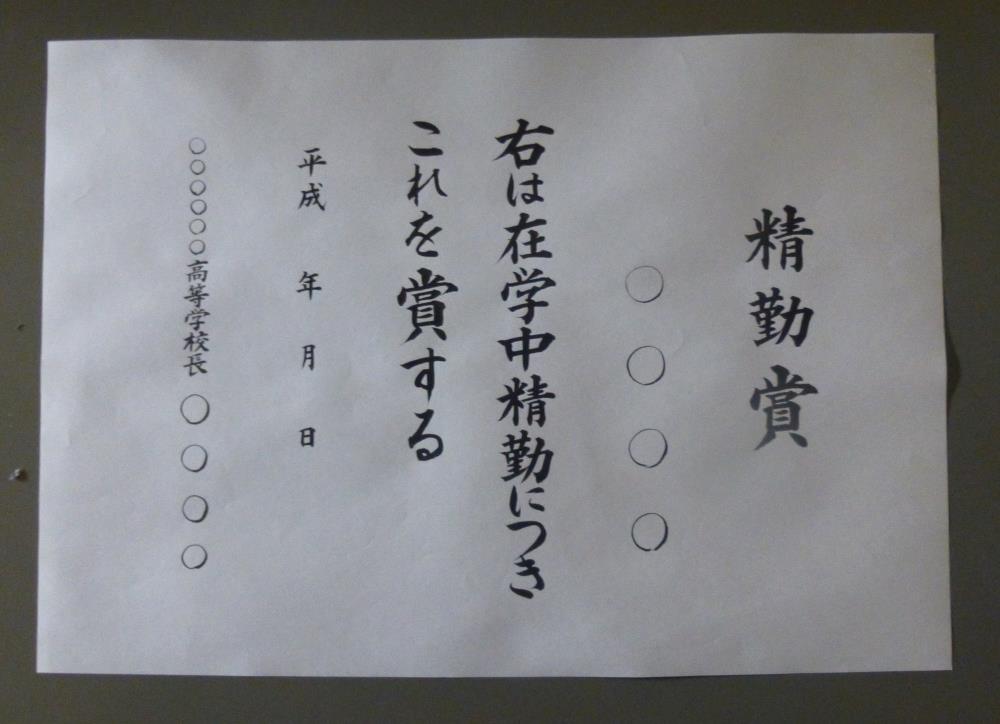 精勤賞
○○○○
右は在学中精勤につき
これを賞する
平成　年　月　日
○○○○○○高等学校長○○○○